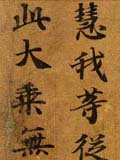 慧我等從
此大乘無